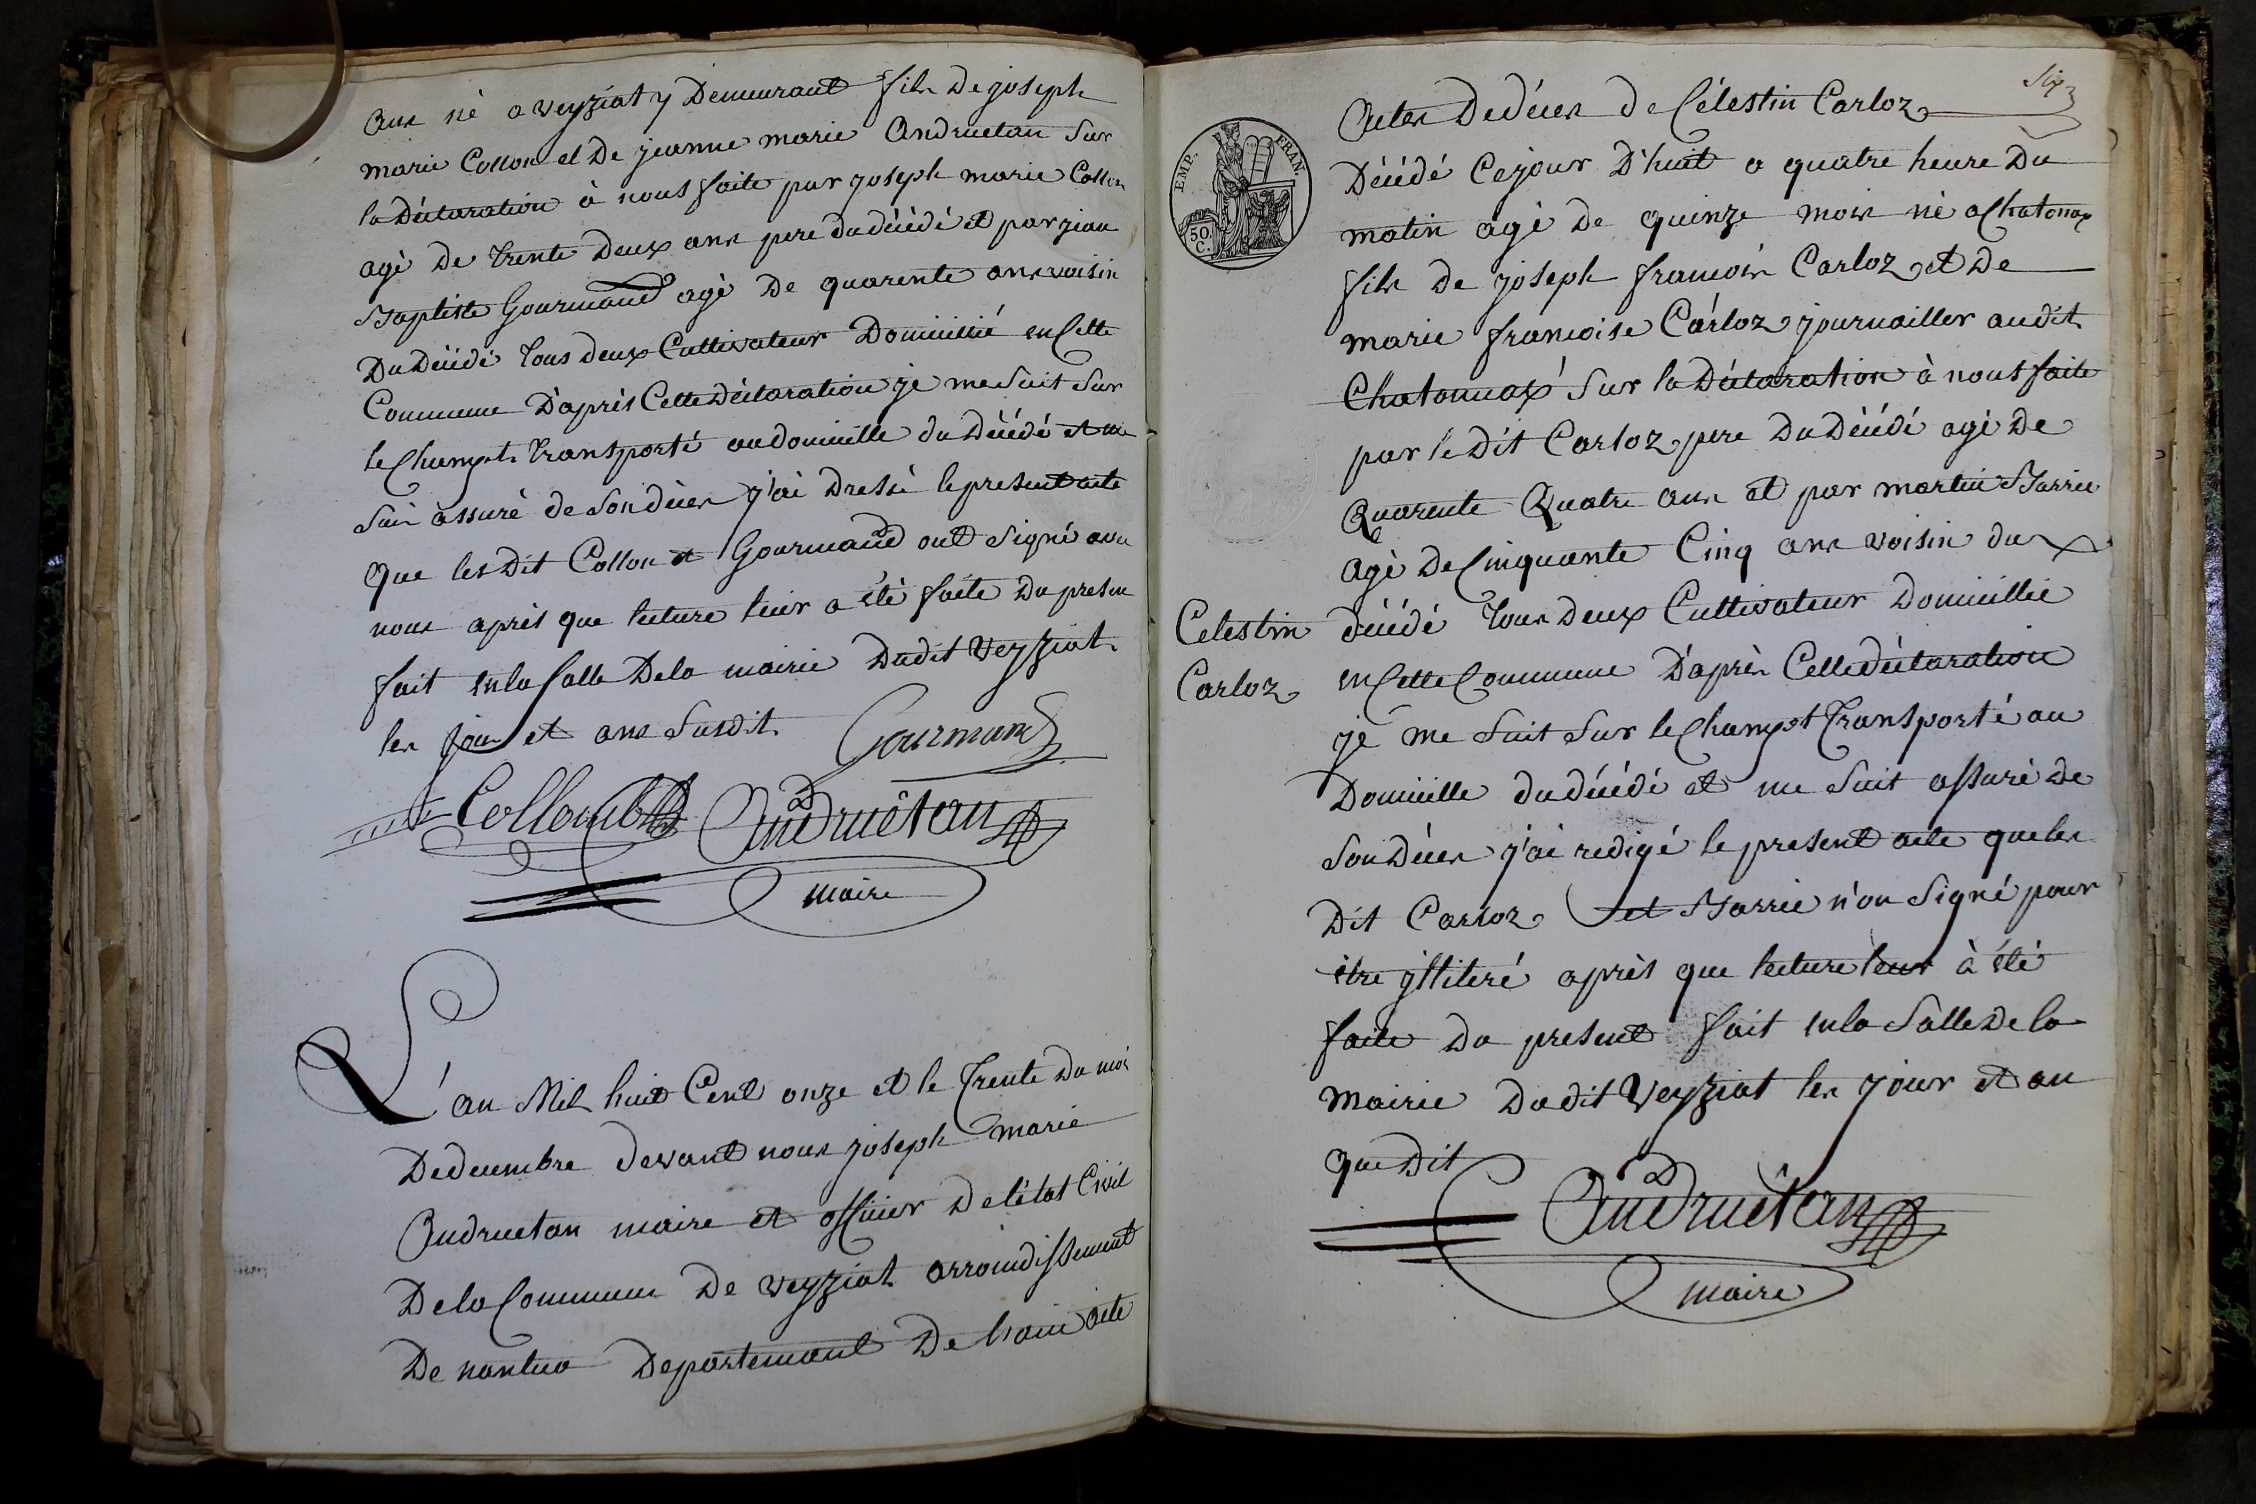 ans né a veyziat y Demeurant fils De joseph
marie Collon et De jeanne marie Andruetan Sur
la Déclaration à nous faite par joseph marie Collon
agé De trente Deux ans pere du décédé et par jean
Baptiste Gourmand agé De quarente ans voisin
Du Décédé tous deux Cultivateur Domicillié en Cette
Commune D'après Cette Déclaration je me suit Sur
le Champt transporté au domicille du Décédé et me
suis assuré de Son décès j'ai Dressé le present acte
Que les Dit Collon et Gourmand ont Signé avec
nous après que lecture leur a été faite Du presen
fait en la Salle De la mairie Dudit Veyziat
les jour et ans Susdit
Gourmand
Collomb Andruétan
maire
L'an Mil huit Cent onze et le trente Du moi
De decembre devant nous joseph marie
Andruetan maire et officier De l'état Civil
De la Commune De veyziat arroindissement
De nantua Departement De l'ain acte
Six
EMP. FRAN.
50.
C.
Actes De décès de Célestin Carloz
Décédé Cejour D'huit a quatre heure Du
matin agé de quinze mois né a Chatonax
fils De joseph francois Carloz et De
marie francoise Carloz journailler audit
Chatonnax Sur la Déclaration à nous faite
par le Dit Carloz pere Du Décédé agé De
Quarente Quatre ans et par martin Barrie
agé De Cinquante Cinq ans voisin du
Celestin
Carloz
décédé tous Deux Cultivateur Domicillié
en Cette Commune D'après Cette déclaration
je me suit Sur le Champt transporté au
Domicille du décédé et me suit assuré de
Son Décès j'ai redigé le present acte que les
Dit Carloz et Barrie n'on Signé pour
être yllitéré après que lecture leur à été
faite Du present fait en la Salle De la
Mairie Dudit Veyziat les jour et an
que Dit
Andruétan
maire